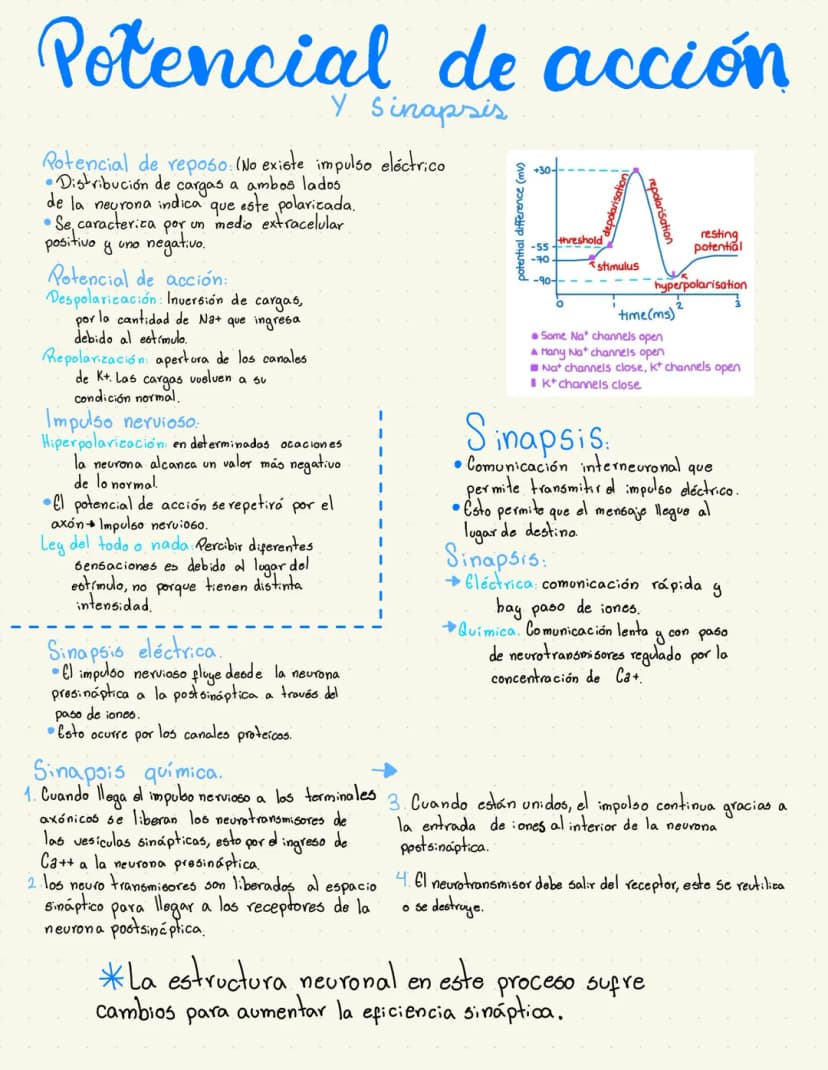 Potencial de acción
Y Sinapsis
Potencial de reposo: (No existe impulso eléctrico
• Distribución de cargas a ambos lados
de la neurona indica que este polarizada.
• Se caracteriza por un medio extracelular
positivo y uno negativo.
Potencial de acción:
Despolarización: Inversión de cargas,
por la cantidad de Na+ que ingresa
debido al estímulo.
Repolarización: apertura de los canales
de K+. Las cargas vuelven a su
condición normal.
potential difference (mv)
+30
-55
-70
-90
threshold
depolarisation
repolarisation
stimulus
resting
potential
hyperpolarisation
0
1
2
3
time(ms)
● Some Na+ channels open
▲ Many Na+ channels open
■ Na+ channels close, K+ channels open
▮ K+ channels close
Impulso nervioso:
Hiperpolarización: en determinadas ocaciones
la neurona alcanza un valor más negativo
de lo normal.
• El potencial de acción se repetirá por el
axón → Impulso nervioso.
Ley del todo o nada: Percibir diferentes
sensaciones es debido al lugar del
estímulo, no porque tienen distinta
intensidad.
Sinapsis:
• Comunicación interneuronal que
permite transmitir el impulso eléctrico.
• Esto permite que el mensaje llegue al
lugar de destino.
Sinapsis:
→ Eléctrica: comunicación rápida y
hay paso de iones.
→ Química. Comunicación lenta y con paso
de neurotransmisores regulado por la
concentración de Ca+.
Sinapsis eléctrica.
• El impulso nervioso fluye desde la neurona
presináptica a la postsináptica a través del
paso de iones.
• Esto ocurre por los canales proteicos.
Sinapsis química. →
1. Cuando llega el impulso nervioso a los terminales
axónicos se liberan los neurotransmisores de
las vesículas sinápticas, esto por el ingreso de
Ca++ a la neurona presináptica.
2. los neuro transmisores son liberados al espacio
sináptico para llegar a los receptores de la
neurona postsináptica.
3. Cuando están unidos, el impulso continua gracias a
la entrada de iones al interior de la neurona
postsináptica.
4. El neurotransmisor debe salir del receptor, este se reutiliza
o se destruye.
* La estructura neuronal en este proceso sufre
cambios para aumentar la eficiencia sináptica.